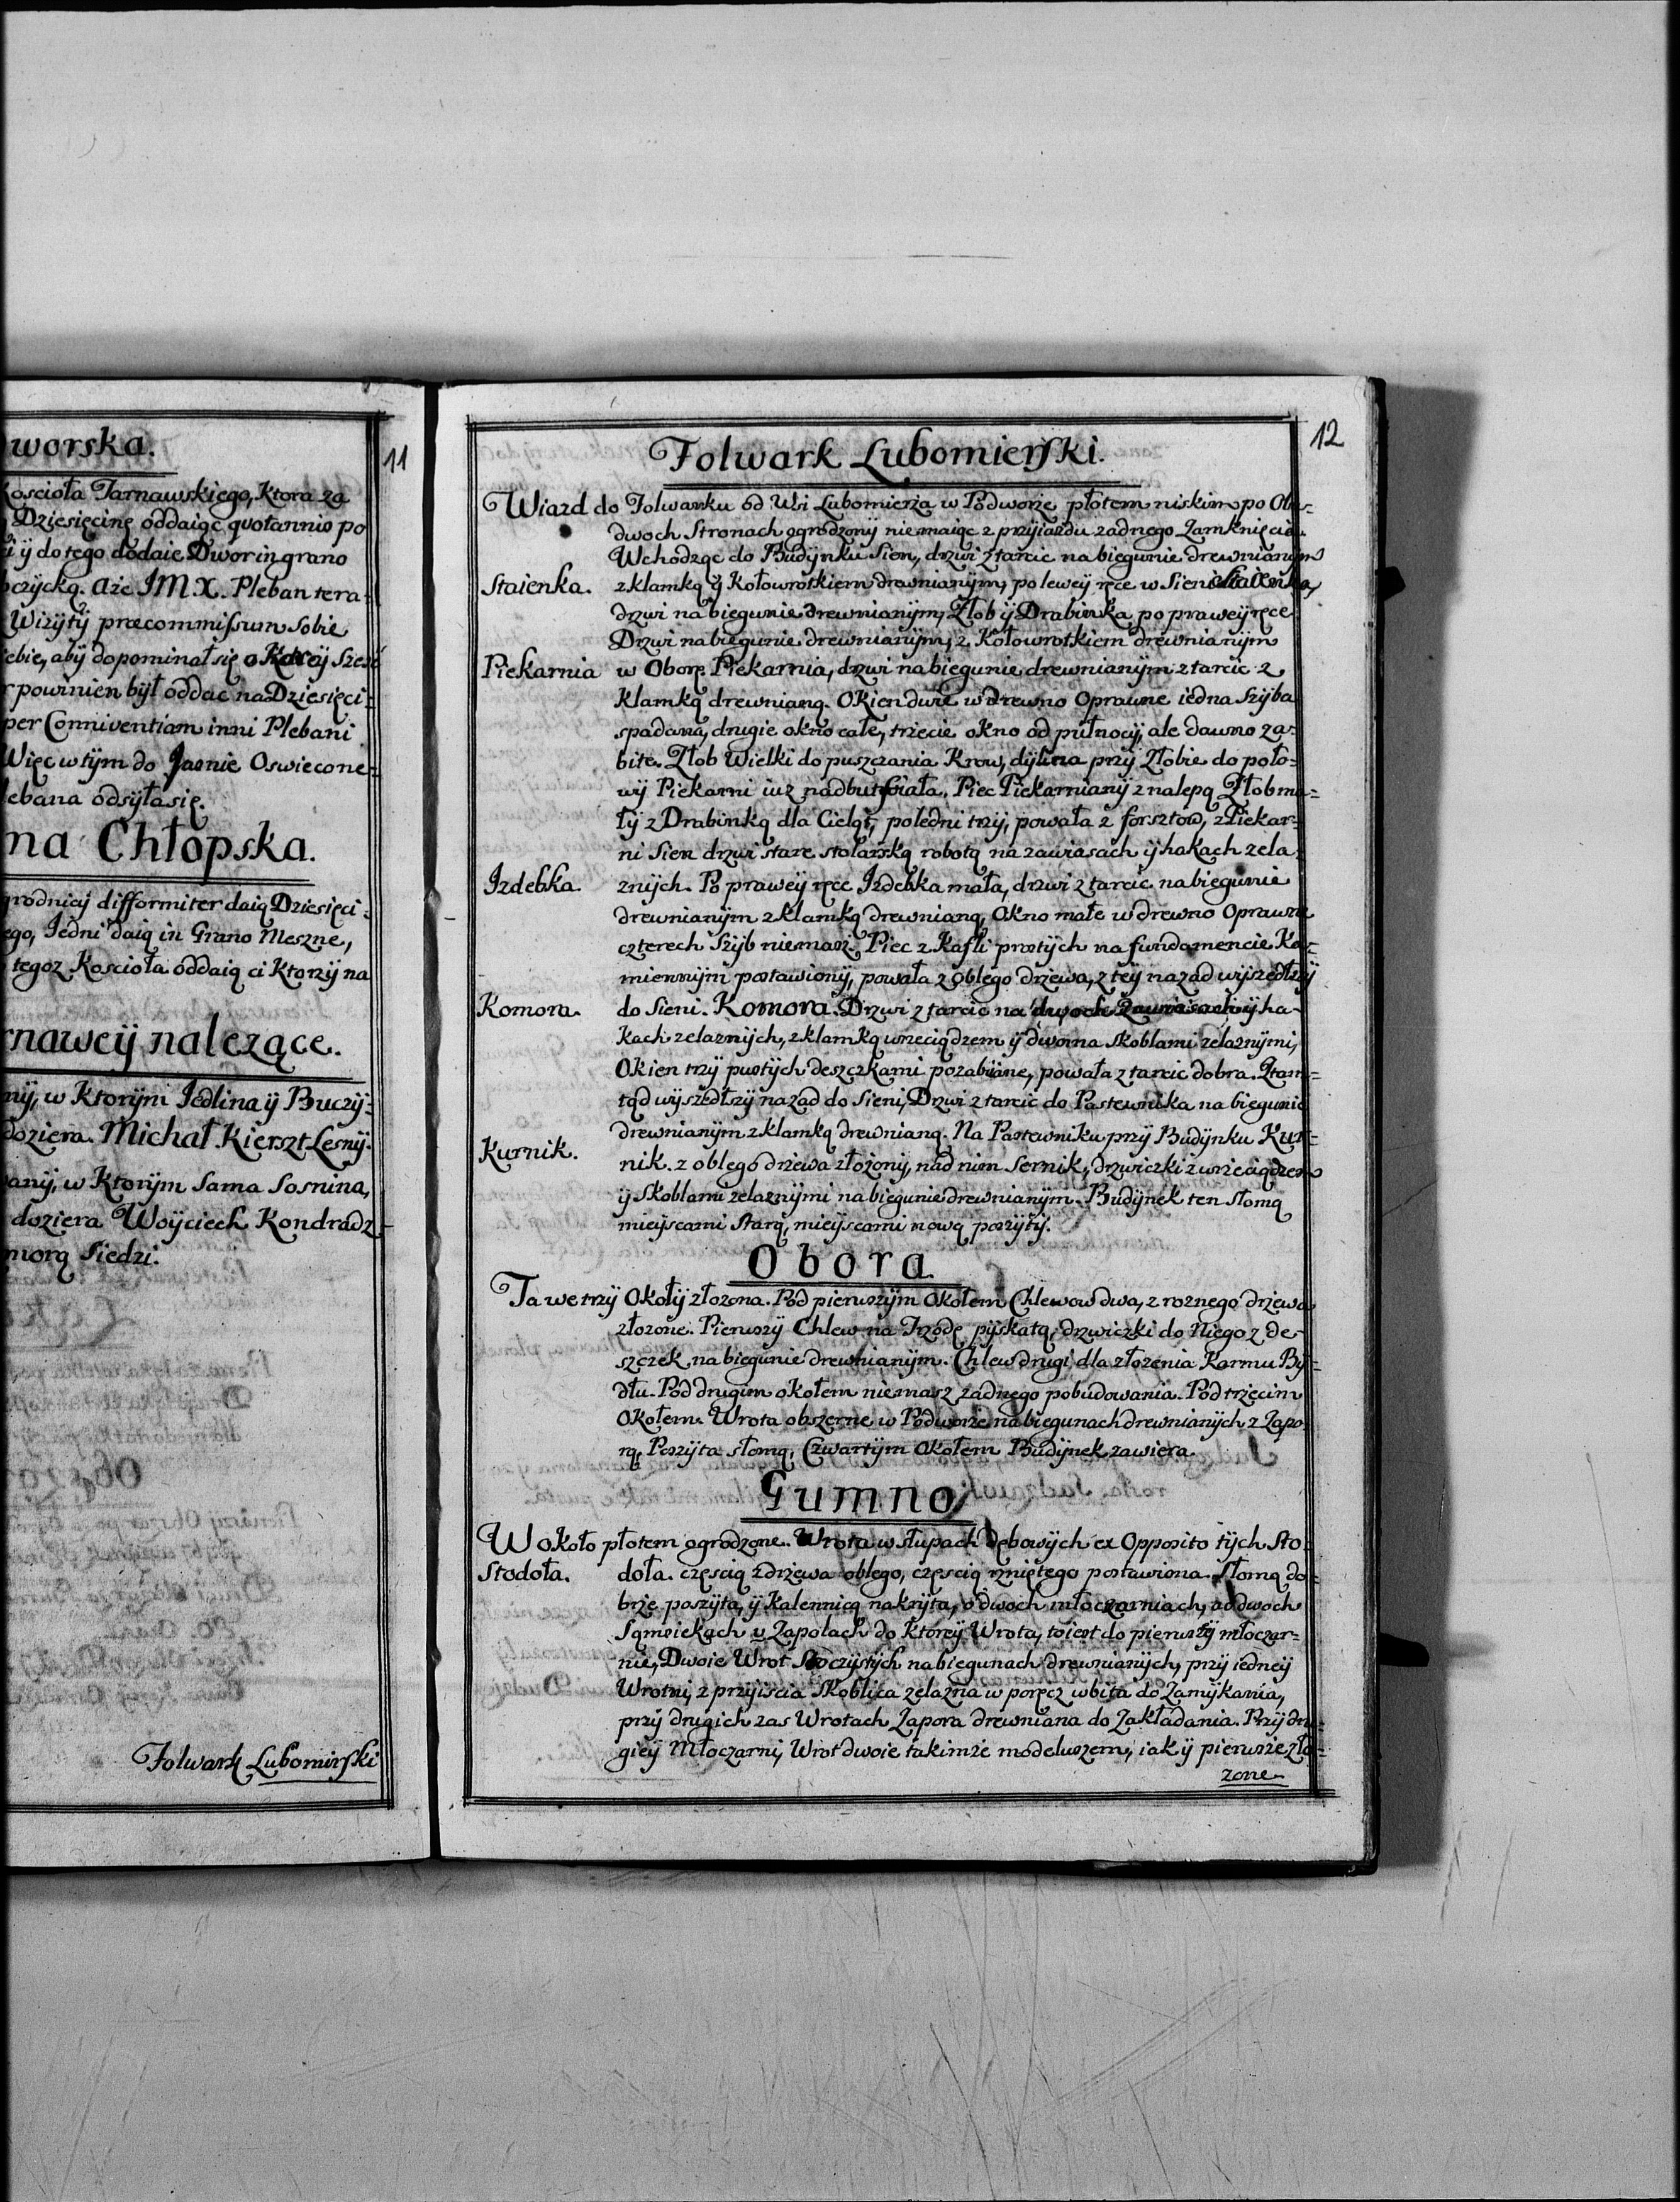 worska.
11
Koscioła Tarnawskiego, Ktora za
Dziesięcinę oddaiąc qvotannis po
ÿ do tego dodaie Dwor in grano
bczÿcką. Aże JM.X. Pleban tera-
Wizÿtÿ præcommissum sobie
iebie, abÿ dopominał się o Ktoreÿ Szesc
powinien bÿł oddac na Dziesięci-
per Conniventiam inni Plebani
Więc w tÿm do Jasnie Oswiecone-
lebana odsÿła się.
na Chłopska.
grodnicÿ difformiter daią Dziesięci-
ego, Jedni daią in Grano Meszne,
tegoz Koscioła oddaią ci Ktorzÿ na
rnaweÿ nalezące.
nÿ, w Ktorÿm Jedlina ÿ Buczÿ-
doziera. Michał Kierszt Lesnÿ.
anÿ, w Ktorÿm Sama Sosnina,
doziera Woÿciech Kondradz-
morą Siedzi.
Folwark Lubomirski
12
Folwark Lubomierski.
Wiazd do Folwarku od Wsi Lubomierza w Podworze płotem niskim po Obu-
dwoch Stronach ogrodzonÿ niemaiąc z przÿiazdu zadnego Zamknięcia.
Wchodząc do Budÿnku Sien, drzwi z tarcic na biegunie drewnianÿm
Staienka. z klamką ÿ Kołowrotkiem drewnianÿm, po leweÿ ręce w Sieni Staienka,
drzwi na biegunie drewnianÿm, Złob ÿ Drabinka, po praweÿ ręce
Drzwi na biegunie drewnianÿm, z Kołowrotkiem drewnianÿm
Piekarnia w Oborę. Piekarnia, drzwi na biegunie drewnianÿm z tarcic z
Klamką drewnianą. Okien dwie w drewno Oprawne iedna Szÿba
spadana, drugie okno całe, trzecie okno od pułnocÿ, ale dawno za-
bite. Złob Wielki do puszczania Krow, dÿlina przÿ Złobie do poło-
wÿ Piekarni iuz nadbutwiała. Piec Piekarnianÿ z nalepą Złob ma-
łÿ z Drabinką dla Cieląt, poledni trzÿ, powała z forsztow, z Piekar-
ni Sien drzwi stare stolarską robotą na zawiasach ÿ hakach zela-
Jzdebka. znÿch. Po praweÿ ręce Jzdebka mała, drzwi z tarcic na biegunie
drewnianÿm z klamką drewnianą, Okno małe w drewno Oprawne
czterech Szÿb niemasz. Piec z Kafli prostÿch na fundamencie Ka-
miennÿm postawionÿ, powała z oblego drzewa, z teÿ nazad wÿszedłszÿ
Komora. do Sieni. Komora. Drzwi z tarcic na dwoch Zawiasach ÿ ha-
kach zelaznÿch, z klamką wrzeciądzem ÿ dwoma skoblami zelaznÿmi,
Okien trzÿ pustÿch deszczkami pozabiiane, powała z tarcic dobra. Ztam-
tąd wÿszedłszÿ nazad do Sieni, Drzwi z tarcic do Pastewnika na biegunie
drewnianÿm z klamką drewnianą. Na Pastewniku przÿ Budÿnku Kur-
Kurnik. nik. z oblego drzewa złożonÿ, nad nim Sernik, drzwiczki z wrzeciądzem
ÿ Skoblami zelaznÿmi na biegunie drewnianÿm. Budÿnek ten słomą
mieÿscami starą, mieÿscami nową poszÿtÿ.
Obora.
Ta we trzÿ Okołÿ złozona. Pod pierwszÿm Okołem Chlewow dwa, z roznego drzewa
złozone. Pierwszÿ Chlew na Trzodę pÿskatą, drzwiczki do Niego z de-
szczek na biegunie drewnianÿm. Chlew drugi dla złozenia Karmu Bÿ-
dłu. Pod drugim okołem niemasz zadnego pobudowania. Pod trzecim
Okołem. Wrota obszerne w Podworze na biegunach drewnianÿch z Zapo-
rą, Poszÿta słomą, Czwartÿm Okołem Budÿnek zawiera.
Gumno
W Około płotem ogrodzone. Wrota w słupach dębowÿch ex Opposito tÿch Sto-
Stodoła. doła. częscią z drzewa oblego, częscią rzniętego postawiona. Słomą do-
brze poszÿta, ÿ Kalennicą nakrÿta, o dwoch młoczarniach, o dwoch
Sąmsiekach ÿ Zapolach do Ktoreÿ Wrota, toiest do pierwszeÿ młoczar-
nie, Dwoie Wrot Stoczÿstÿch na biegunach drewnianÿch, przÿ iedneÿ
Wrotni z przÿiscia Skoblica zelazna w poręcz wbita do Zamÿkania,
przÿ drugich zas Wrotach Zapora drewniana do Zakładania. Przÿ dru-
gieÿ Młoczarni, Wrot dwoie takimże modeluszem, iak ÿ pierwsze zło-
zone.